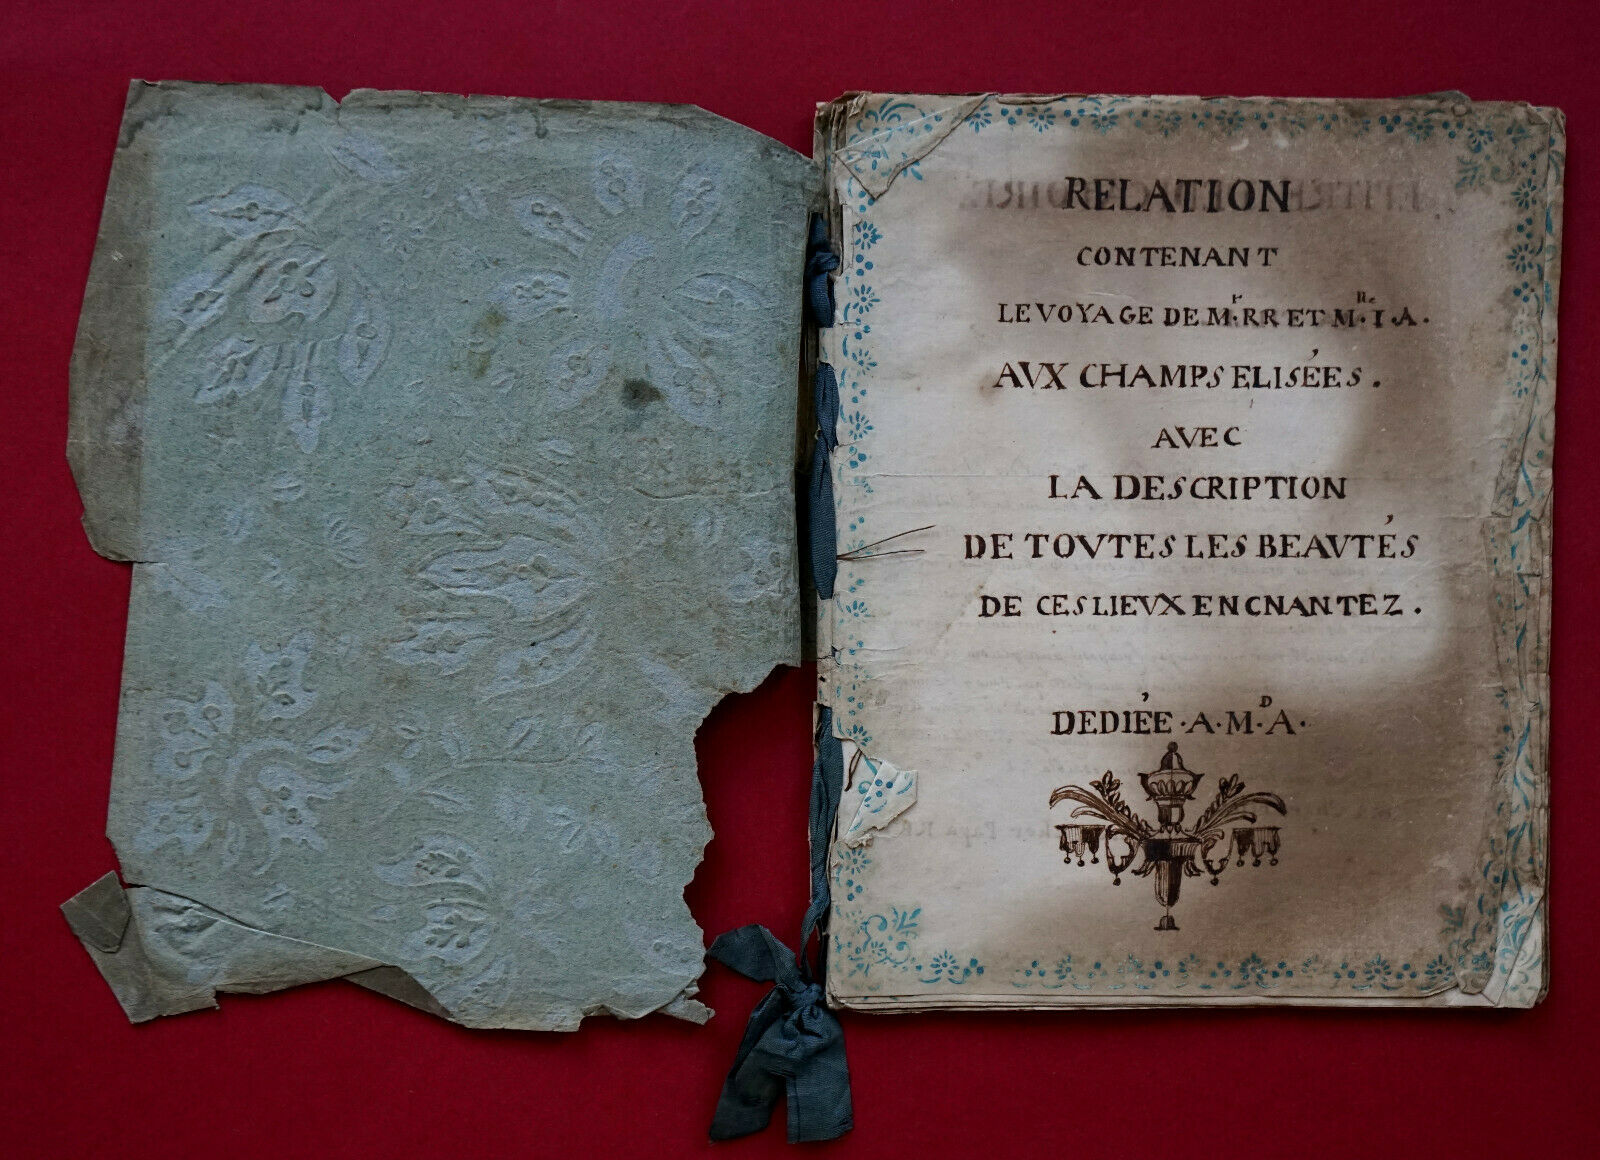 RELATION
CONTENANT
LE VOYAGE DE Mr. RR ET Mlle. I. A.
AVX CHAMPS ELISÉES.
AVEC
LA DESCRIPTION
DE TOVTES LES BEAVTÉS
DE CES LIEVX ENCNANTEZ.
DEDIÉE. A. MD. A.